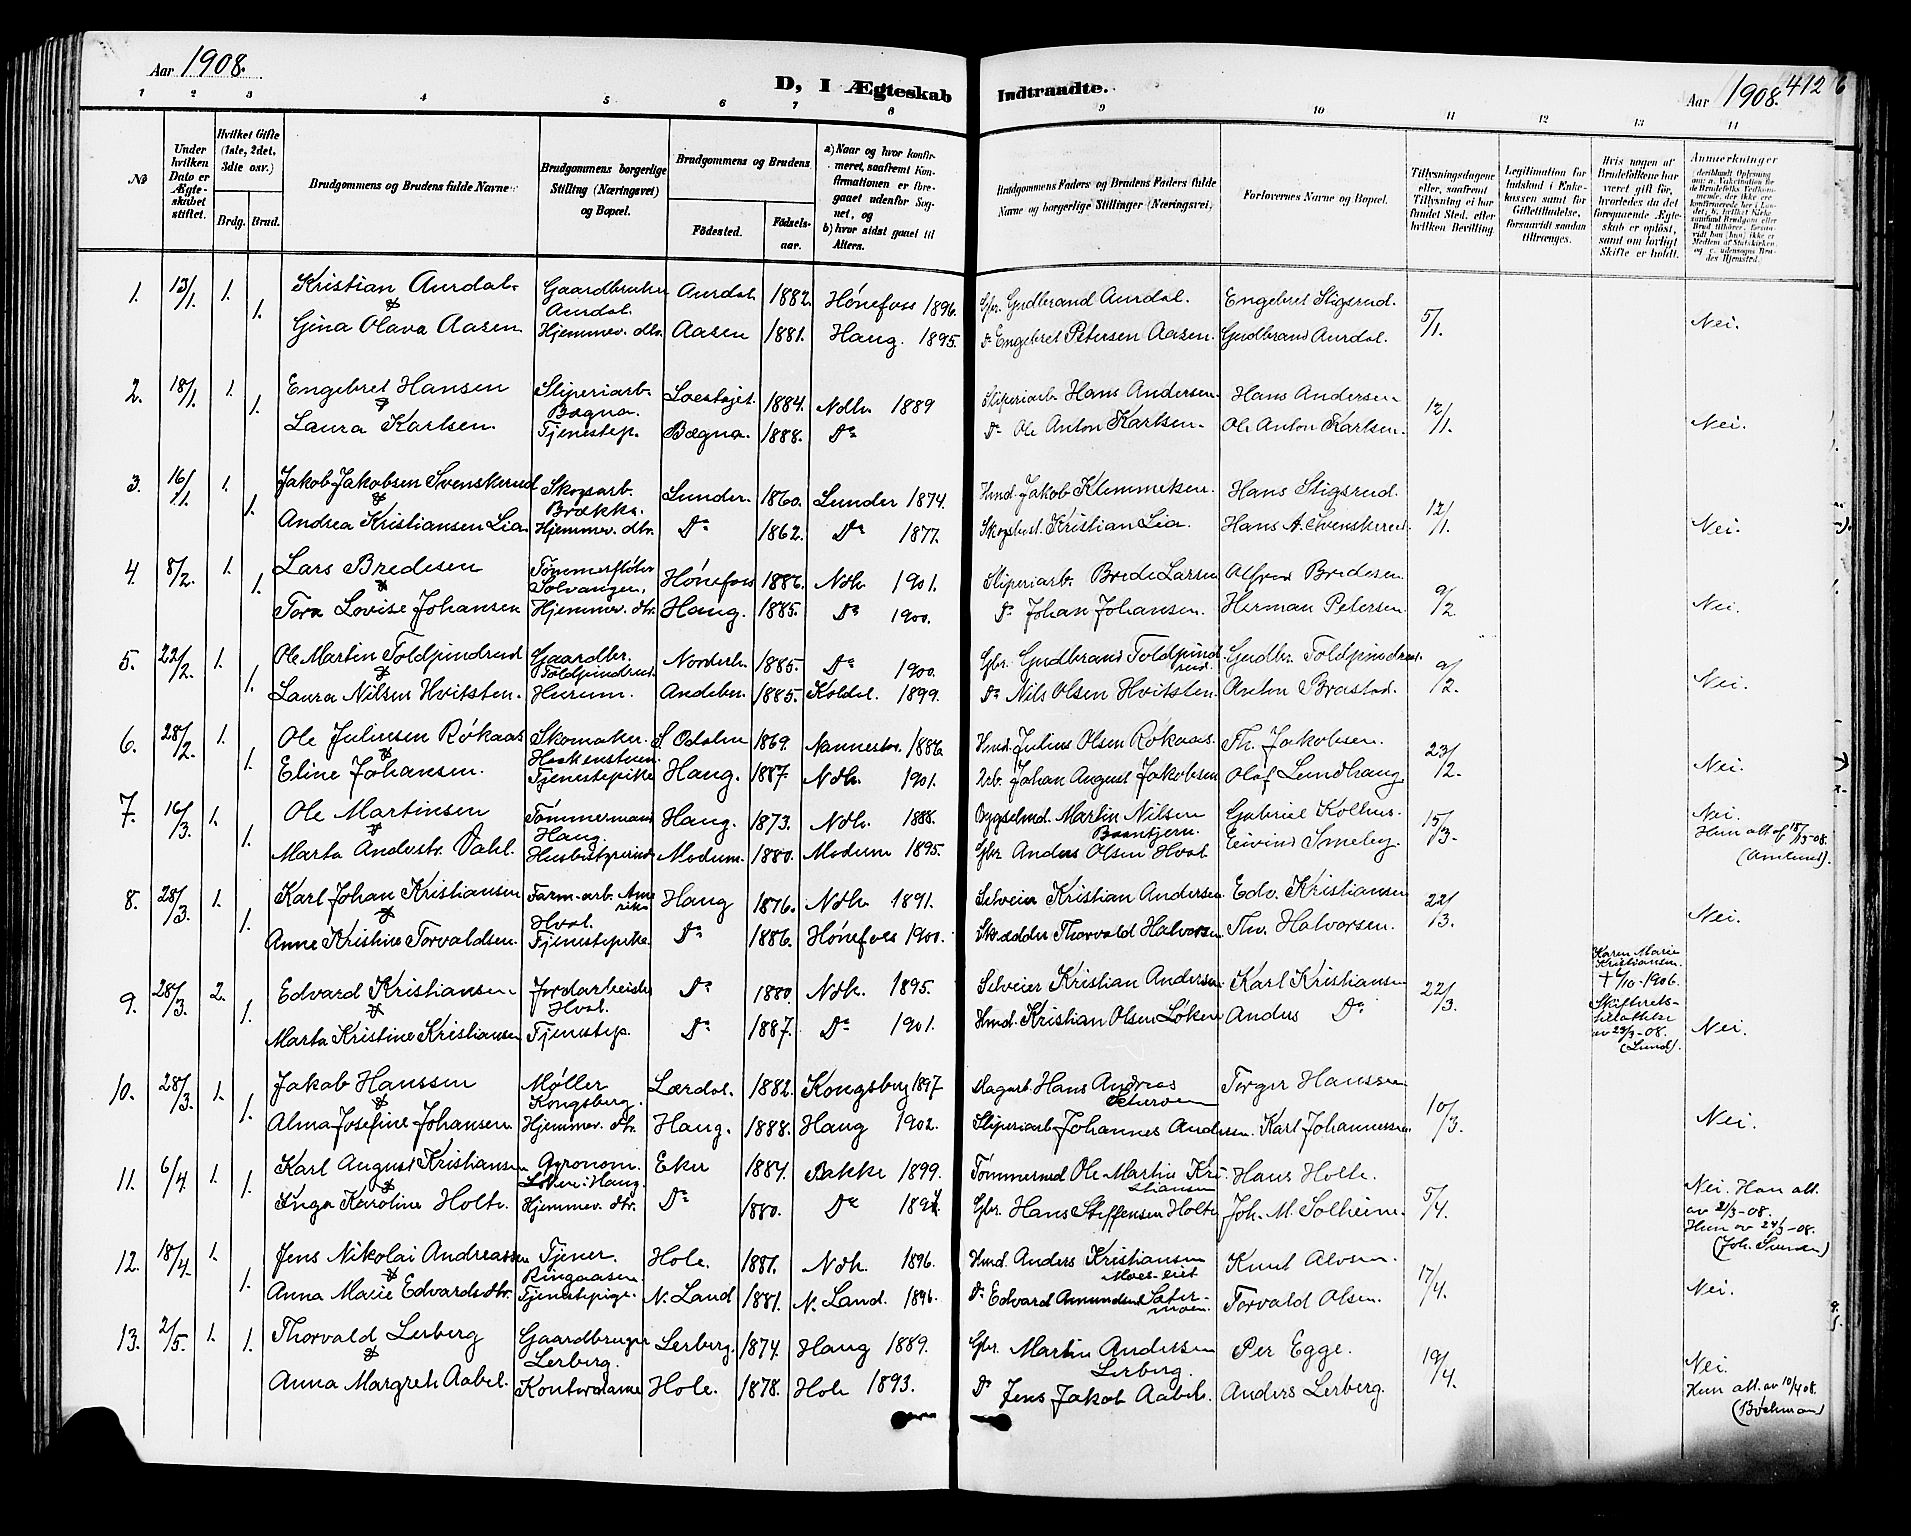 Aar 1908.
D, I Ægteskab Indtraadte.
Aar 1908. 412
1 2 3 4 5 6 7 8 9 10 11 12 13 14
No
Under hvilken Dato er Ægteskabet stiftet.
Hvilket Gifte (1ste, 2det, 3die osv.)
Brdg. Brud.
Brudgommens og Brudens fulde Navne
Brudgommens borgerlige Stilling (Næringsvei) og Bopæl.
Brudgommens og Brudens
Fødested.
Fødselsaar.
a) Naar og hvor konfirmeret, saafremt Konfirmationen er foregaaet udenfor Sognet, og
b) hvor sidst gaaet til Alters.
Brudgommens Faders og Brudens Faders fulde Navne og borgerlige Stillinger (Næringsvei)
Forlovernes Navne og Bopæl.
Tillysningsdagene eller, saafremt Tillysning ei har fundet Sted, efter hvilken Bevilling.
Legitimation for Indskud i Enkekassen samt for Giftetilladelse, forsaavidt saadan tiltrænges.
Hvis nogen af Brudefolkene har været gift før, hvorledes da det foregaaende Ægteskab er opløst, samt om lovligt Skifte er holdt.
Anmerkninger
1. 13/1. 1. Kristian Aurdal Gaardbruker Aurdal. Aurdal 1882. Hønefos 1896. Gbr. Gudbrand Aurdal. Engebret Stigsrud. 5/1.
& 1. Gina Olava Aasen Hjemmev. dtr. Aasen 1881. Haug. 1895. Do Engebret Petersen Aasen. Gudbrand Aurdal. Nei.
2. 18/1. 1. Engebret Hansen Sliperiarb. Bægna. 1884. Ndh. 1889 Sliperiarb. Hans Andersen. Hans Andersen 12/1.
& 1. Laura Karlsen. Tjenestep. Bægna. 1888. Do Do Ole Anton Karlsen. Ole Anton Karlsen. Nei.
3. 16/1. 1. Jakob Jakobsen Svenskerud Skogsarb. Brække. Lunder. 1860. Lunder 1874. Hmd. Jakob Klemmetsen. Hans Stigsrud. 12/1.
& 1. Andrea Kristiansen Lia Hjemmev. dtr. Do 1862. Do 1877. Kristian Lia. Hans A. Svenskerud. Nei.
4. 8/2. 1. Lars Bredesen Tømmerfløter Solvangen. Hønefos 1886. Ndh. 1901. Sliperiarb. Brede Larsen Alfred Bredesen 9/2
& 1. Tora Lovise Johansen Hjemmev. dtr. Haug. 1885. Do 1900. Do Johan Johansen. Herman Petersen. Nei.
5. 22/2. 1. Ole Martin Toldpindrud Gaardbr. Toldpindrud. Norderh. 1885. Do 1900. Gbr. Gudbrand Toldpindrud. Gudbr. Toldpindrud. 9/2.
& 1. Laura Nilsen Hvitsten. Hurum. Andebu. 1885. 1899. Do Nils Olsen Hvitsten. Anton Brastad. Nei.
6. 28/2. 1. Ole Juliusen Røkaas Skomaker. S. Odalen 1869. Nannestad. 1886 Hmd. Julius Olsen Røkaas. Th. Jakobsen. 23/2.
& 1. Eline Johansen. Tjenestepike Haug. 1887. Ndh. 1901. Arb. Johan August Jakobsen Olaf Lundhaug Nei.
7. 16/3. 1. Ole Martinsen Tømmermand Haug. Haug. 1873. Ndh. 1888. Bygselmd. Martin Nilsen Gabriel Kolhus. 15/3. Nei.
& 1. Marta Andersdtr. Dahl. Husbestyrerinde Modum. 1880. Modum 1895. Gbr Anders Olsen Hval Eivind Smeby. Hun att. af 15/3-08. (Amlund).
8. 28/3. 1. Karl Johan Kristiansen Farm-arb. Amerika Hval. Haug 1876. Ndh. 1891. Selveier Kristian Andersen. Edv. Kristiansen 22/3.
& 1. Anne Kristine Torvaldsen. Tjenestepike. Do 1886. Hønefos 1900. Skrædder Thorvald Halvorsen Th. Halvorsen. Nei.
9. 28/3. 2. Edvard Kristiansen Jordarbeider Hval. Do 1880. Ndh. 1895. Selveier Kristian Andersen Karl Kristiansen 22/3. Karen Marie Kristiansen. † 6/10-1906. Skifterets- av 28/3-08. (Lund).
& 1. Marta Kristine Kristiansen Tjenestep. Do 1887. Do 1901. Hmd. Kristian Olsen Løken Anders Do Nei.
10. 28/3. 1. Jakob Hanssen Møller Kongsberg. Lærdal. 1882. Kongsberg 1897 Dagarb. Hans Andreas Torger Hanssen 10/3.
& 1. Alma Josefine Johansen. Hjemmev. dtr. Haug. 1888. Haug 1902. Sliperiarb. Johannes Andersen. Karl Johannessen. Nei.
11. 6/4. 1. Karl August Kristiansen Agronom. Løken i Haug. Eker 1884. Bakke 1899. Tømmermd Ole Martin Kristiansen Hans Holte. 5/4.
& 1. Inga Karoline Holte. Hjemmev. dtr. Do 1880. Do Gbr. Hans Steffensen Holte Joh. M. Solheim. Nei. Han att. av 2/3-08. Hun av 24/3-08.
12. 18/4. 1. Jens Nikolai Andreassen Tjener. Ringaasen. Hole. 1881. Ndh. 1896. Hmd. Anders Kristiansen Moes-eiet Knut Alvsen. 17/4.
& 1. Anna Marie Edvardsdtr. Tjenestepige. N. Land 1881. N. Land. 1896. Do Edvard Amundsen Sætermoen. Torvald Olsen. Nei.
13. 2/5. 1. Thorvald Lerberg Gaardbruger Lerberg. Lerberg. 1874. Haug 1889. Gbr. Martin Andersen Lerberg. Per Egge. 19/4.
& 1. Anna Margreth Aabel. Kontordame Hole. 1878. Hole 1893. Do Jens Jakob Aabel. Anders Lerberg. Nei. Hun att. av 10/4 08.